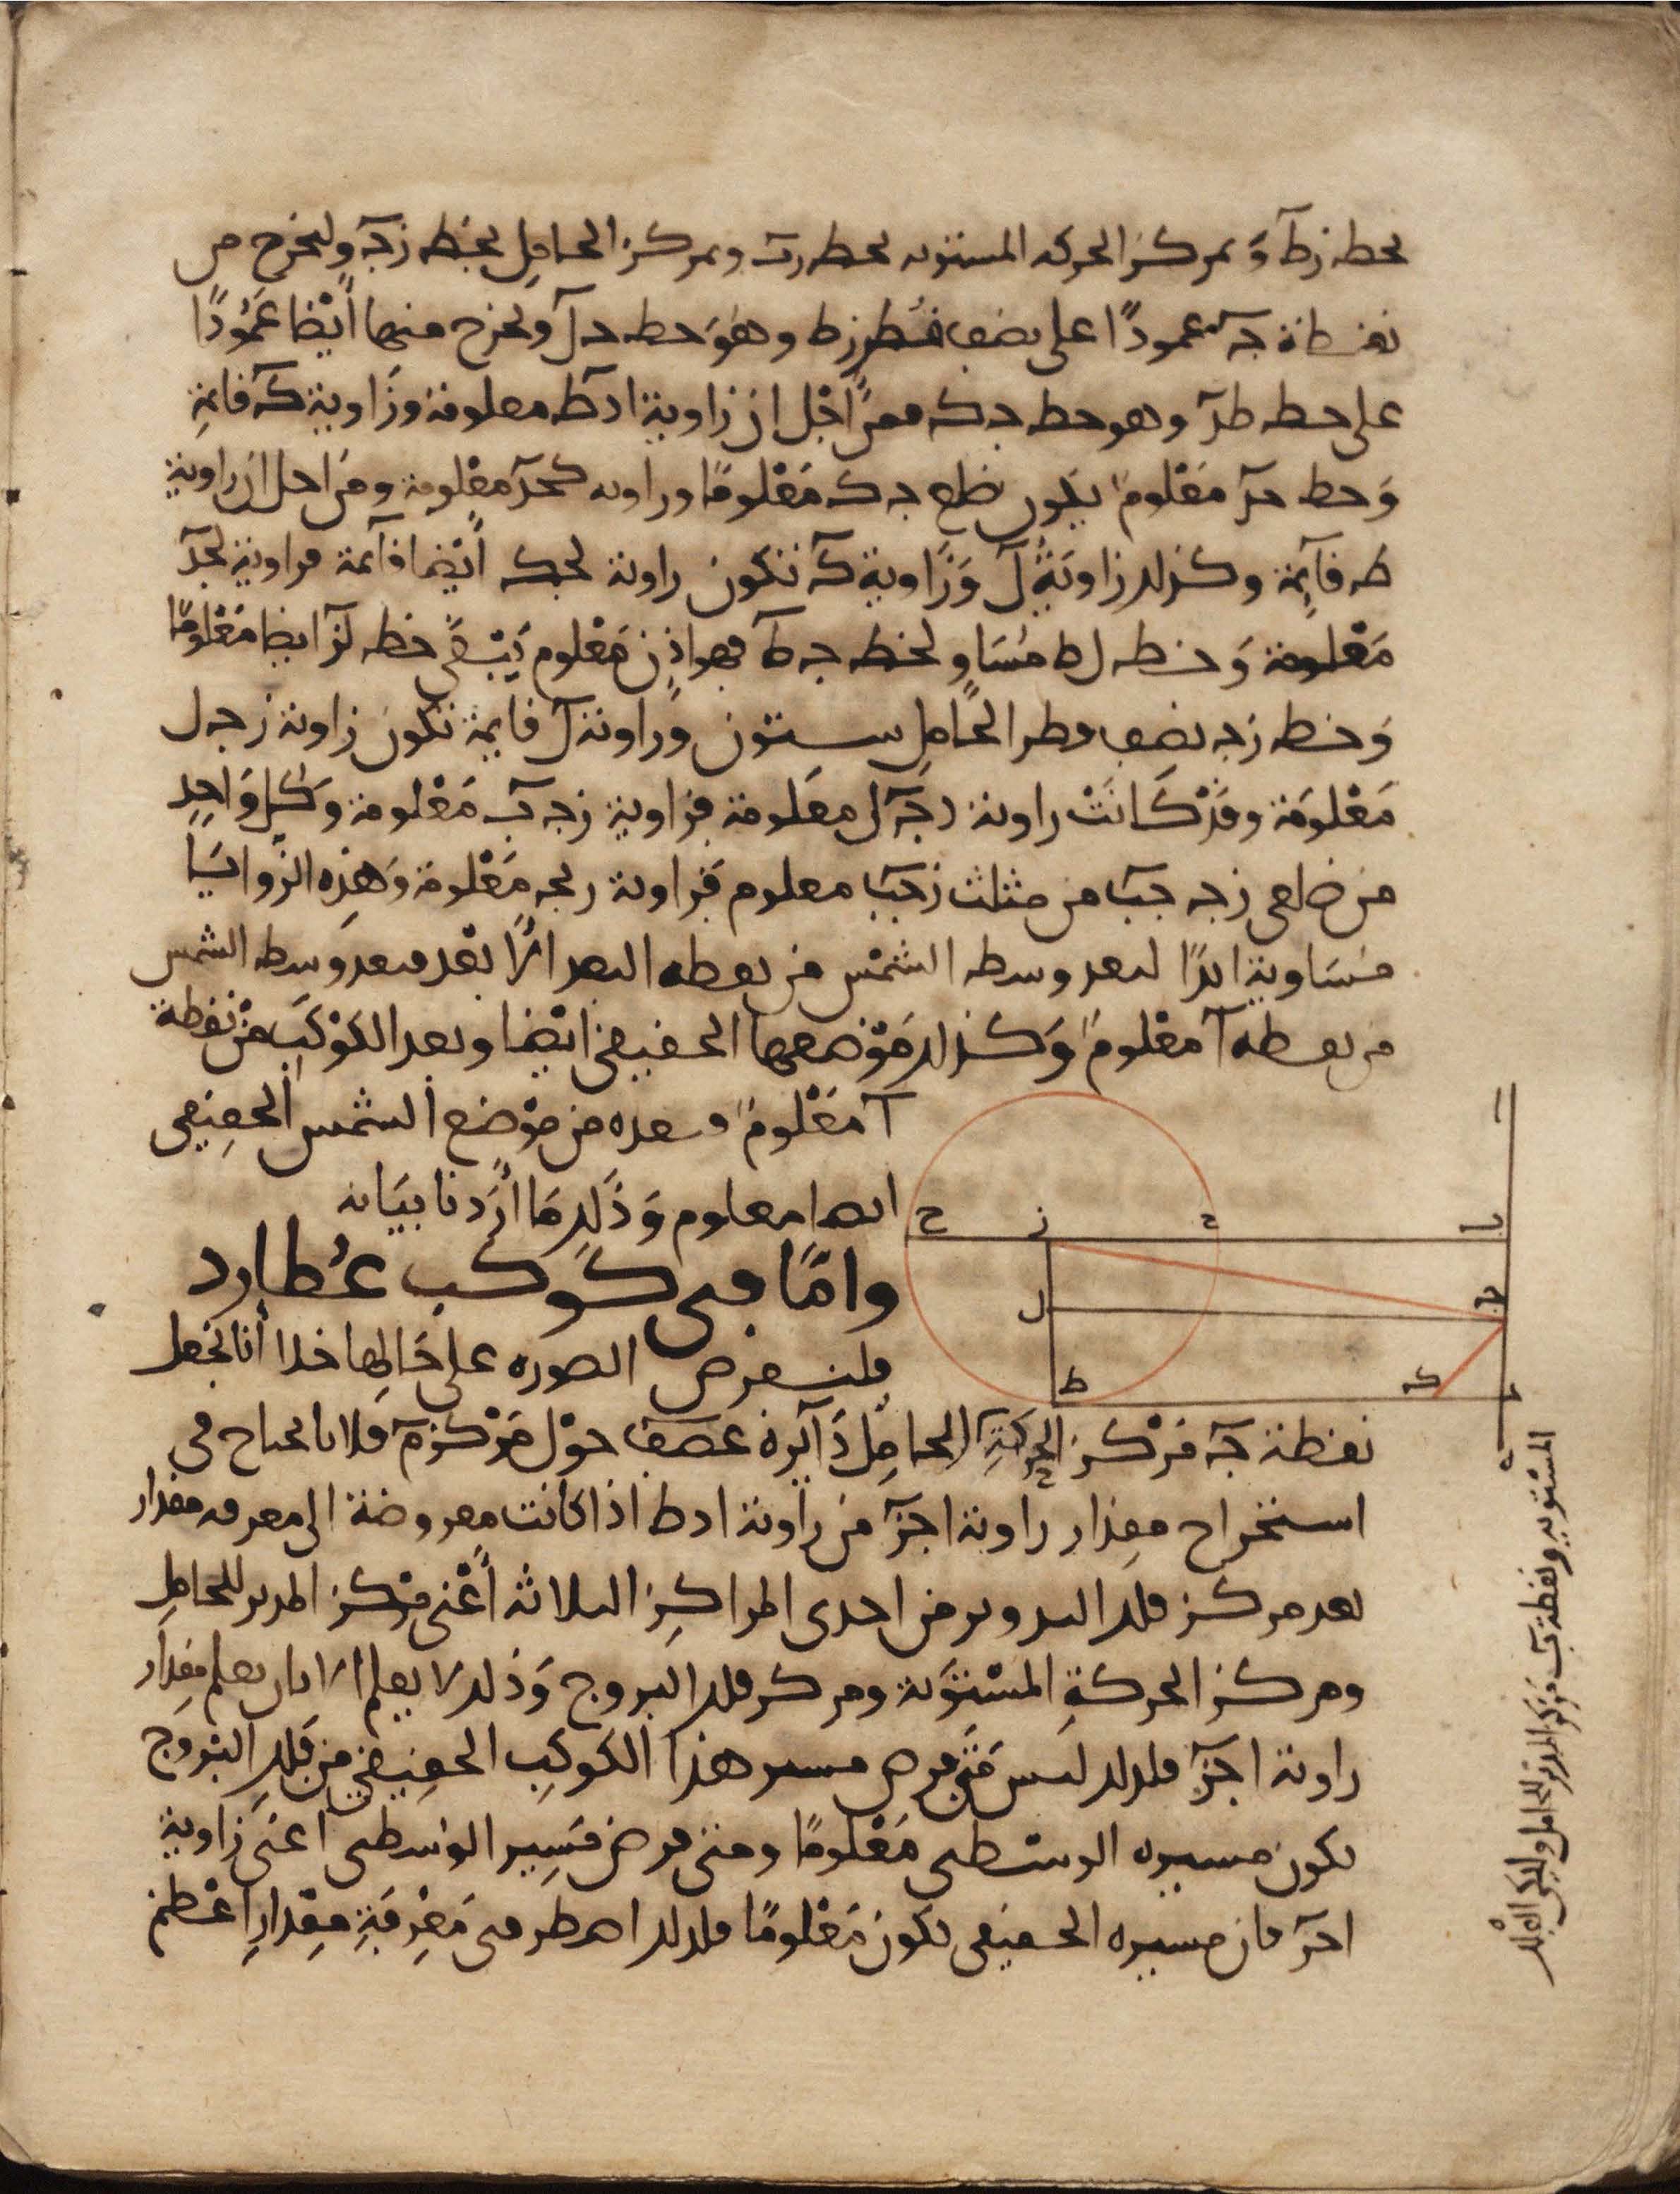 بخط زط وبمركز الحركة المستوية بخط زب وبمركز الحامل بخط زجـ ولنخرج من
نقطة جـ عمودًا على نصف قطر زط وهو خط جـ ل ونخرج منها أيضا عمودًا
على خط طد وهو خط جـ ك فمن اجل ان زاوية ادط معلومة وزاوية ك قايمة
وخط جد معلوم يكون ضلع جـ ك معلومًا وزاوية كجد معلومة ومن اجل ان زاوية
ط قايمة وكذلك زاوية ل وزاوية ك تكون زاوية لجك أيضا قآيمة فزاوية لجد
معلومة وخط لط مساو لخط جـ ك فهو اذن معلوم يبقى خط لز ايضا معلومًا
وخط زجـ نصف قطر الحامل ستون وزاوية ل قايمة تكون زاوية زجـ ل
معلومة وقد كانت زاوية دجـ ل معلومة فزاوية زجـ ب معلومة وكل واحد
من ضلعي زجـ جب من مثلث زجب معلوم فزاوية زبجـ معلومة وهذه الزوايا
مساوية ابدًا لبعد وسط الشمس من نقطة البعد الأبعد فبعد وسط الشمس
من نقطة آ معلوم وكذلك موضعها الحقيقي ايضا وبعد الكوكب من نقطة
آ معلوم وبعده من موضع الشمس الحقيقي
ايضا معلوم وذلك ما أردنا بيانه
وامّا في كوكب عُطارد
فلنفرض الصورة على حالها خلا أنا نجعل
نقطة جـ مركز الحركة الحامل دآيرة عصف حول مركز م فلانا نحتاج في
استخراج مقدار زاوية اجز من زاوية ادط اذا كانت معروضة الى معرفة مقدار
بعد مركز فلك التدوير من احدى المراكز الثلاثة أعني مركز المدير للحامل
ومركز الحركة المستوية ومركز فلك البروج وذلك لا يعلم الا بان يعلم مقدار
زاوية اجز فلذلك ليس متى فرض مسير هذا الكوكب الحقيقي من فلك البروج
يكون مسيره الوسطى معلومًا ومتى فرض مسير الوسطى اعنى زاوية
اجز فان مسيره الحقيقي يكون معلومًا فلذلك اضطر في معرفة مقدار اعظم
ا
ب
ح
ز
ح
جـ
ل
ط
ك
د
ه
المستوية ونقطة ب مركز المدير للحامل